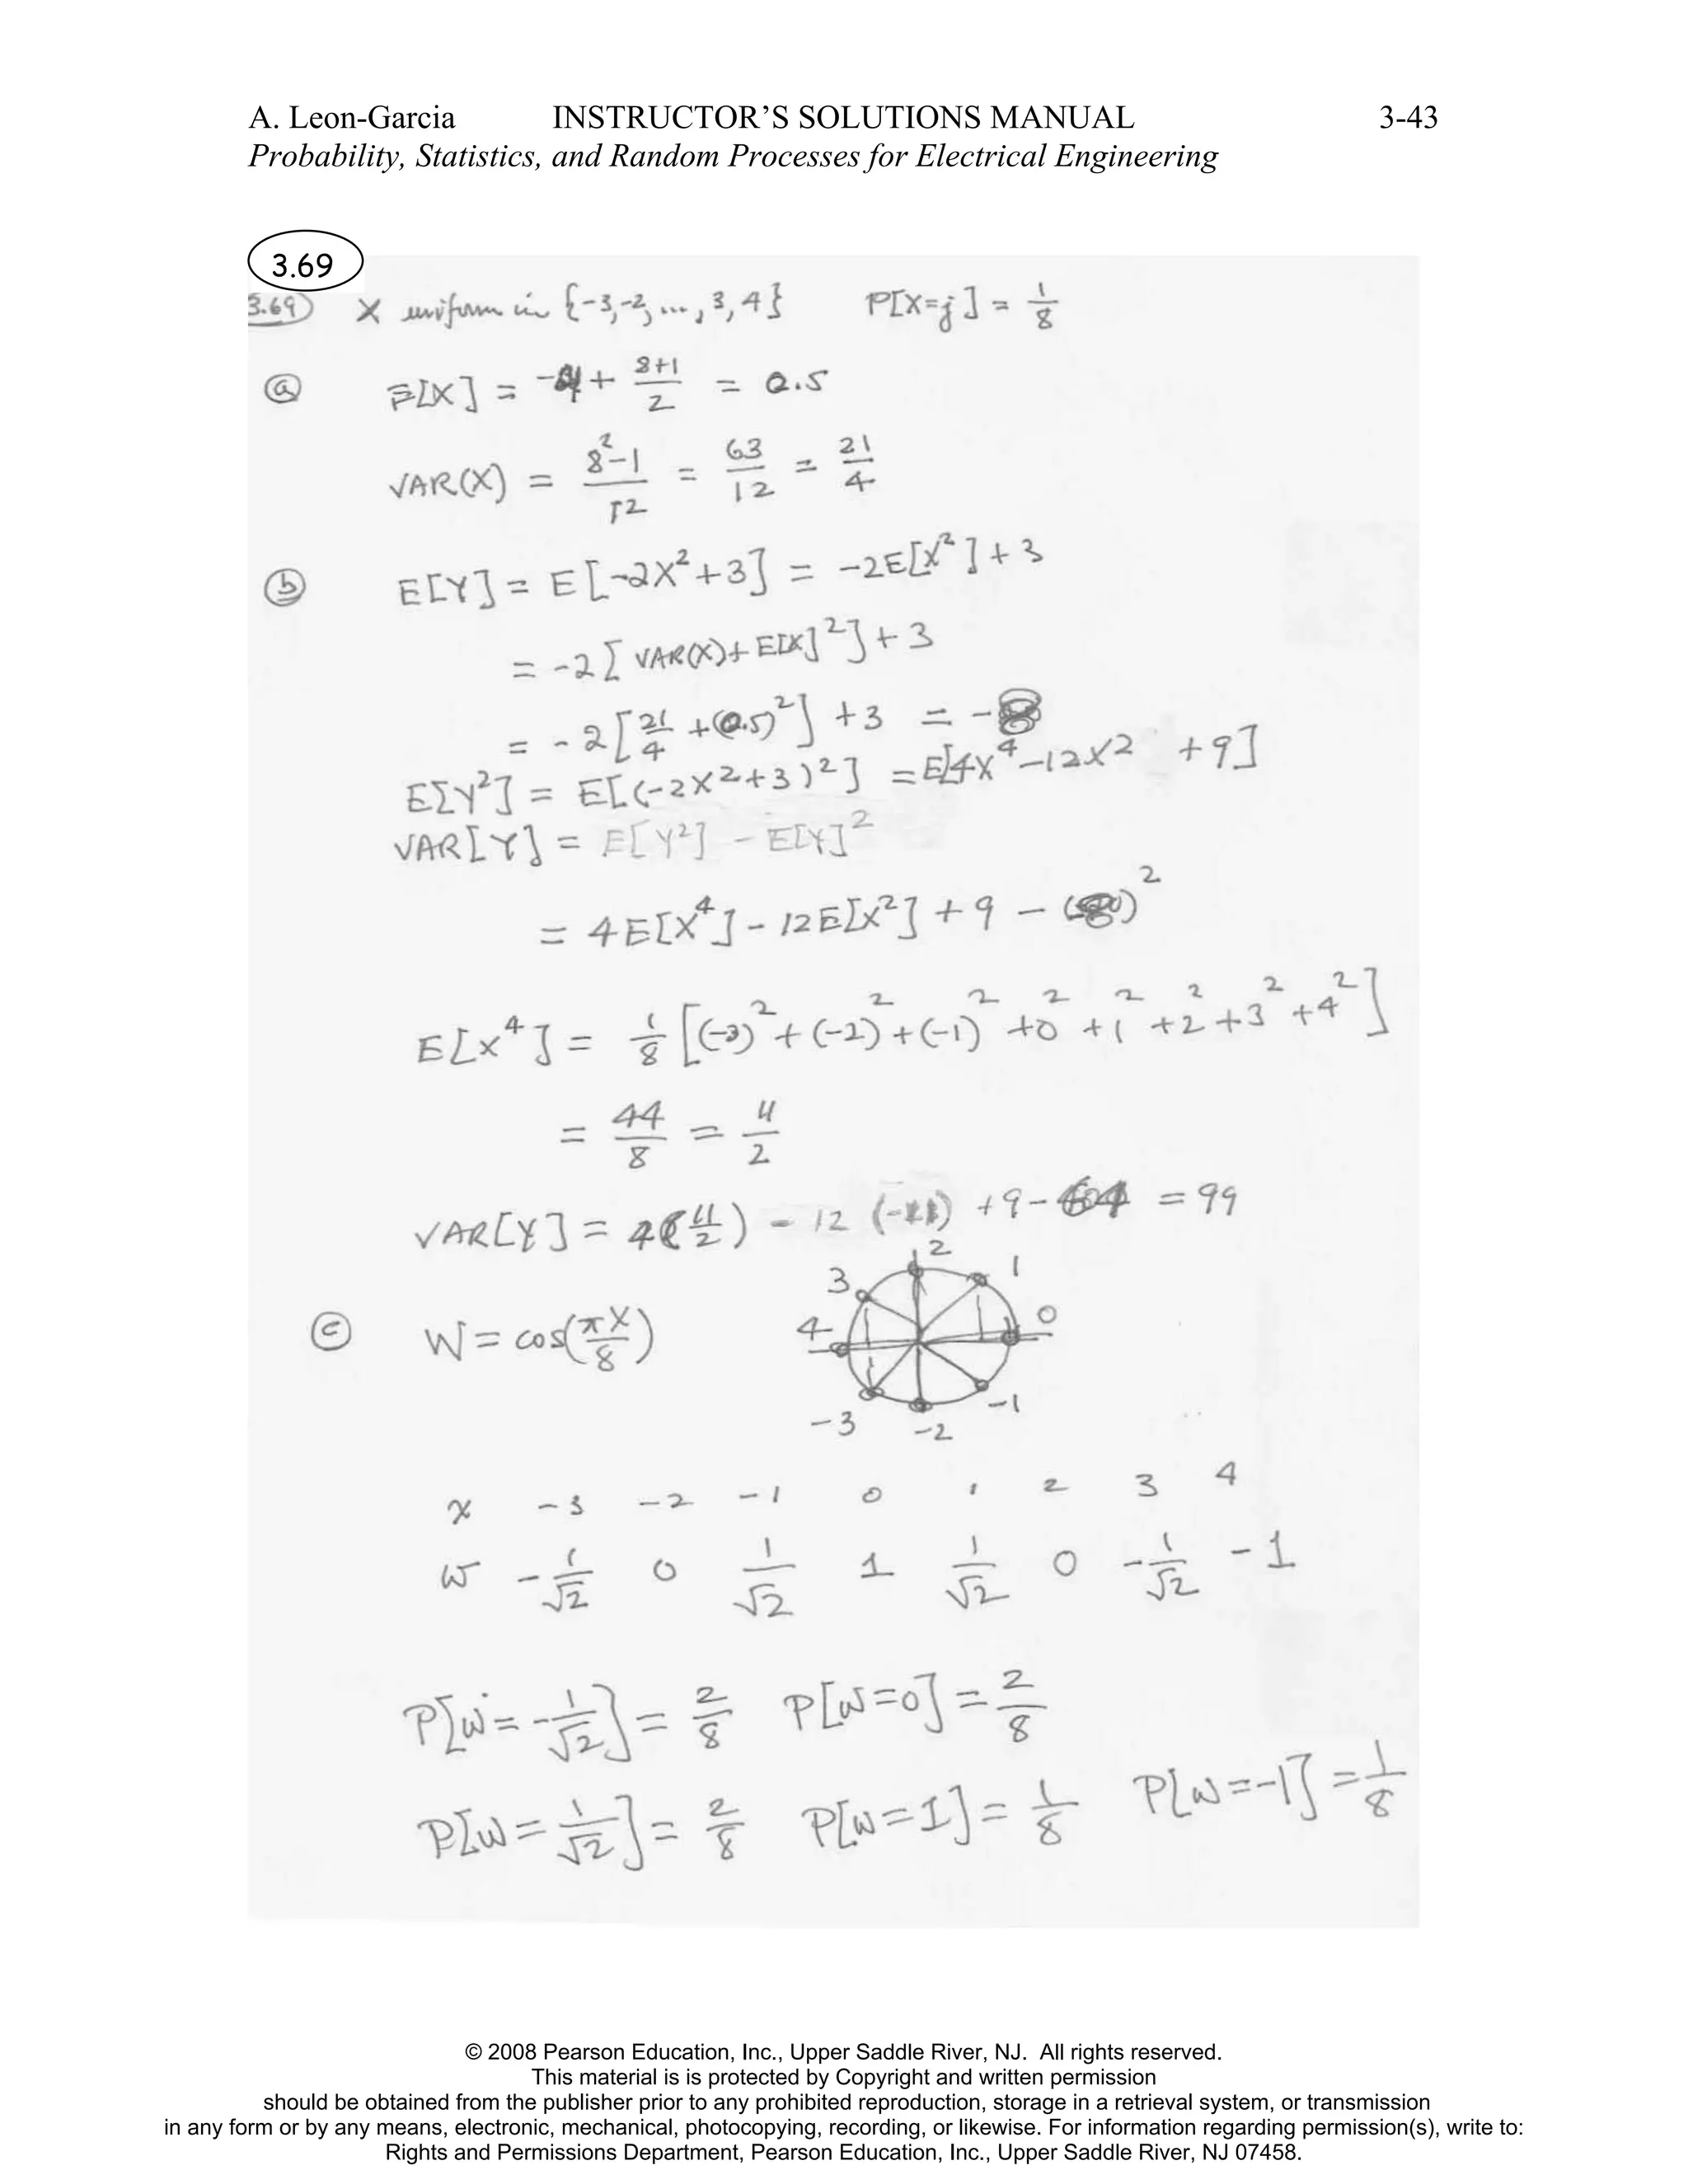 A. Leon-Garcia INSTRUCTOR’S SOLUTIONS MANUAL 3-43
Probability, Statistics, and Random Processes for Electrical Engineering
3.69
3.69) X uniform in {-3,-2, ..., 3, 4} P[X=j] = 1/8
(a) E[X] = -4 + (8+1)/2 = 0.5
VAR(X) = (8²-1)/12 = 63/12 = 21/4
(b) E[Y] = E[-2X²+3] = -2E[X²]+3
= -2[VAR(X)+E[X]²]+3
= -2[21/4 +(0.5)²] +3 = -8
E[Y²] = E[(-2X²+3)²] = E[4X⁴-12X² +9]
VAR[Y] = E[Y²] - E[Y]²
= 4E[X⁴] - 12E[X²] + 9 - ( )²
E[X⁴] = 1/8 [(-3)² + (-2)² + (-1)² + 0² + 1² + 2² + 3² + 4²]
= 44/8 = 11/2
VAR[Y] = 4(11/2) - 12 (-11) + 9 - 64 = 99
2
3 1
4 0
-3 -1
-2
(c) W = cos(πX/8)
x -3 -2 -1 0 1 2 3 4
W -1/√2 0 1/√2 1 1/√2 0 -1/√2 -1
P[W=-1/√2] = 2/8 P[W=0] = 2/8
P[W=1/√2] = 2/8 P[W=1] = 1/8 P[W=-1] = 1/8
© 2008 Pearson Education, Inc., Upper Saddle River, NJ. All rights reserved.
This material is is protected by Copyright and written permission
should be obtained from the publisher prior to any prohibited reproduction, storage in a retrieval system, or transmission
in any form or by any means, electronic, mechanical, photocopying, recording, or likewise. For information regarding permission(s), write to:
Rights and Permissions Department, Pearson Education, Inc., Upper Saddle River, NJ 07458.